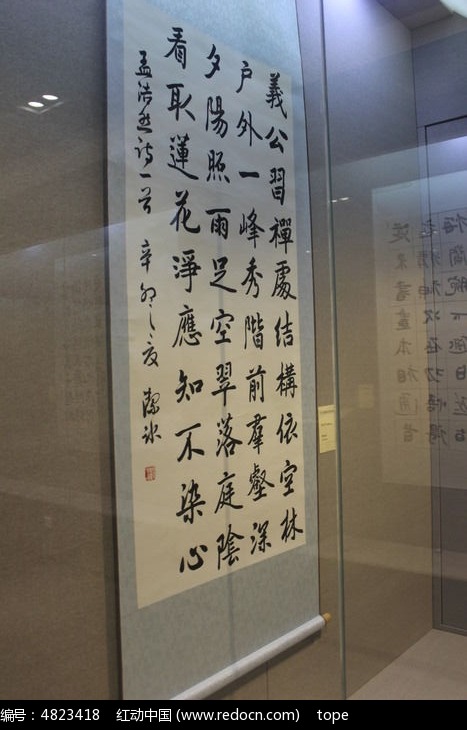 義公習禪處結構依空林
户外一峰秀階前羣壑深
夕陽照雨足空翠落庭陰
看取蓮花淨應知不染心
孟浩然詩一首 辛卯之夏 潔冰
编号：4823418 红动中国 (www.redocn.com) tope